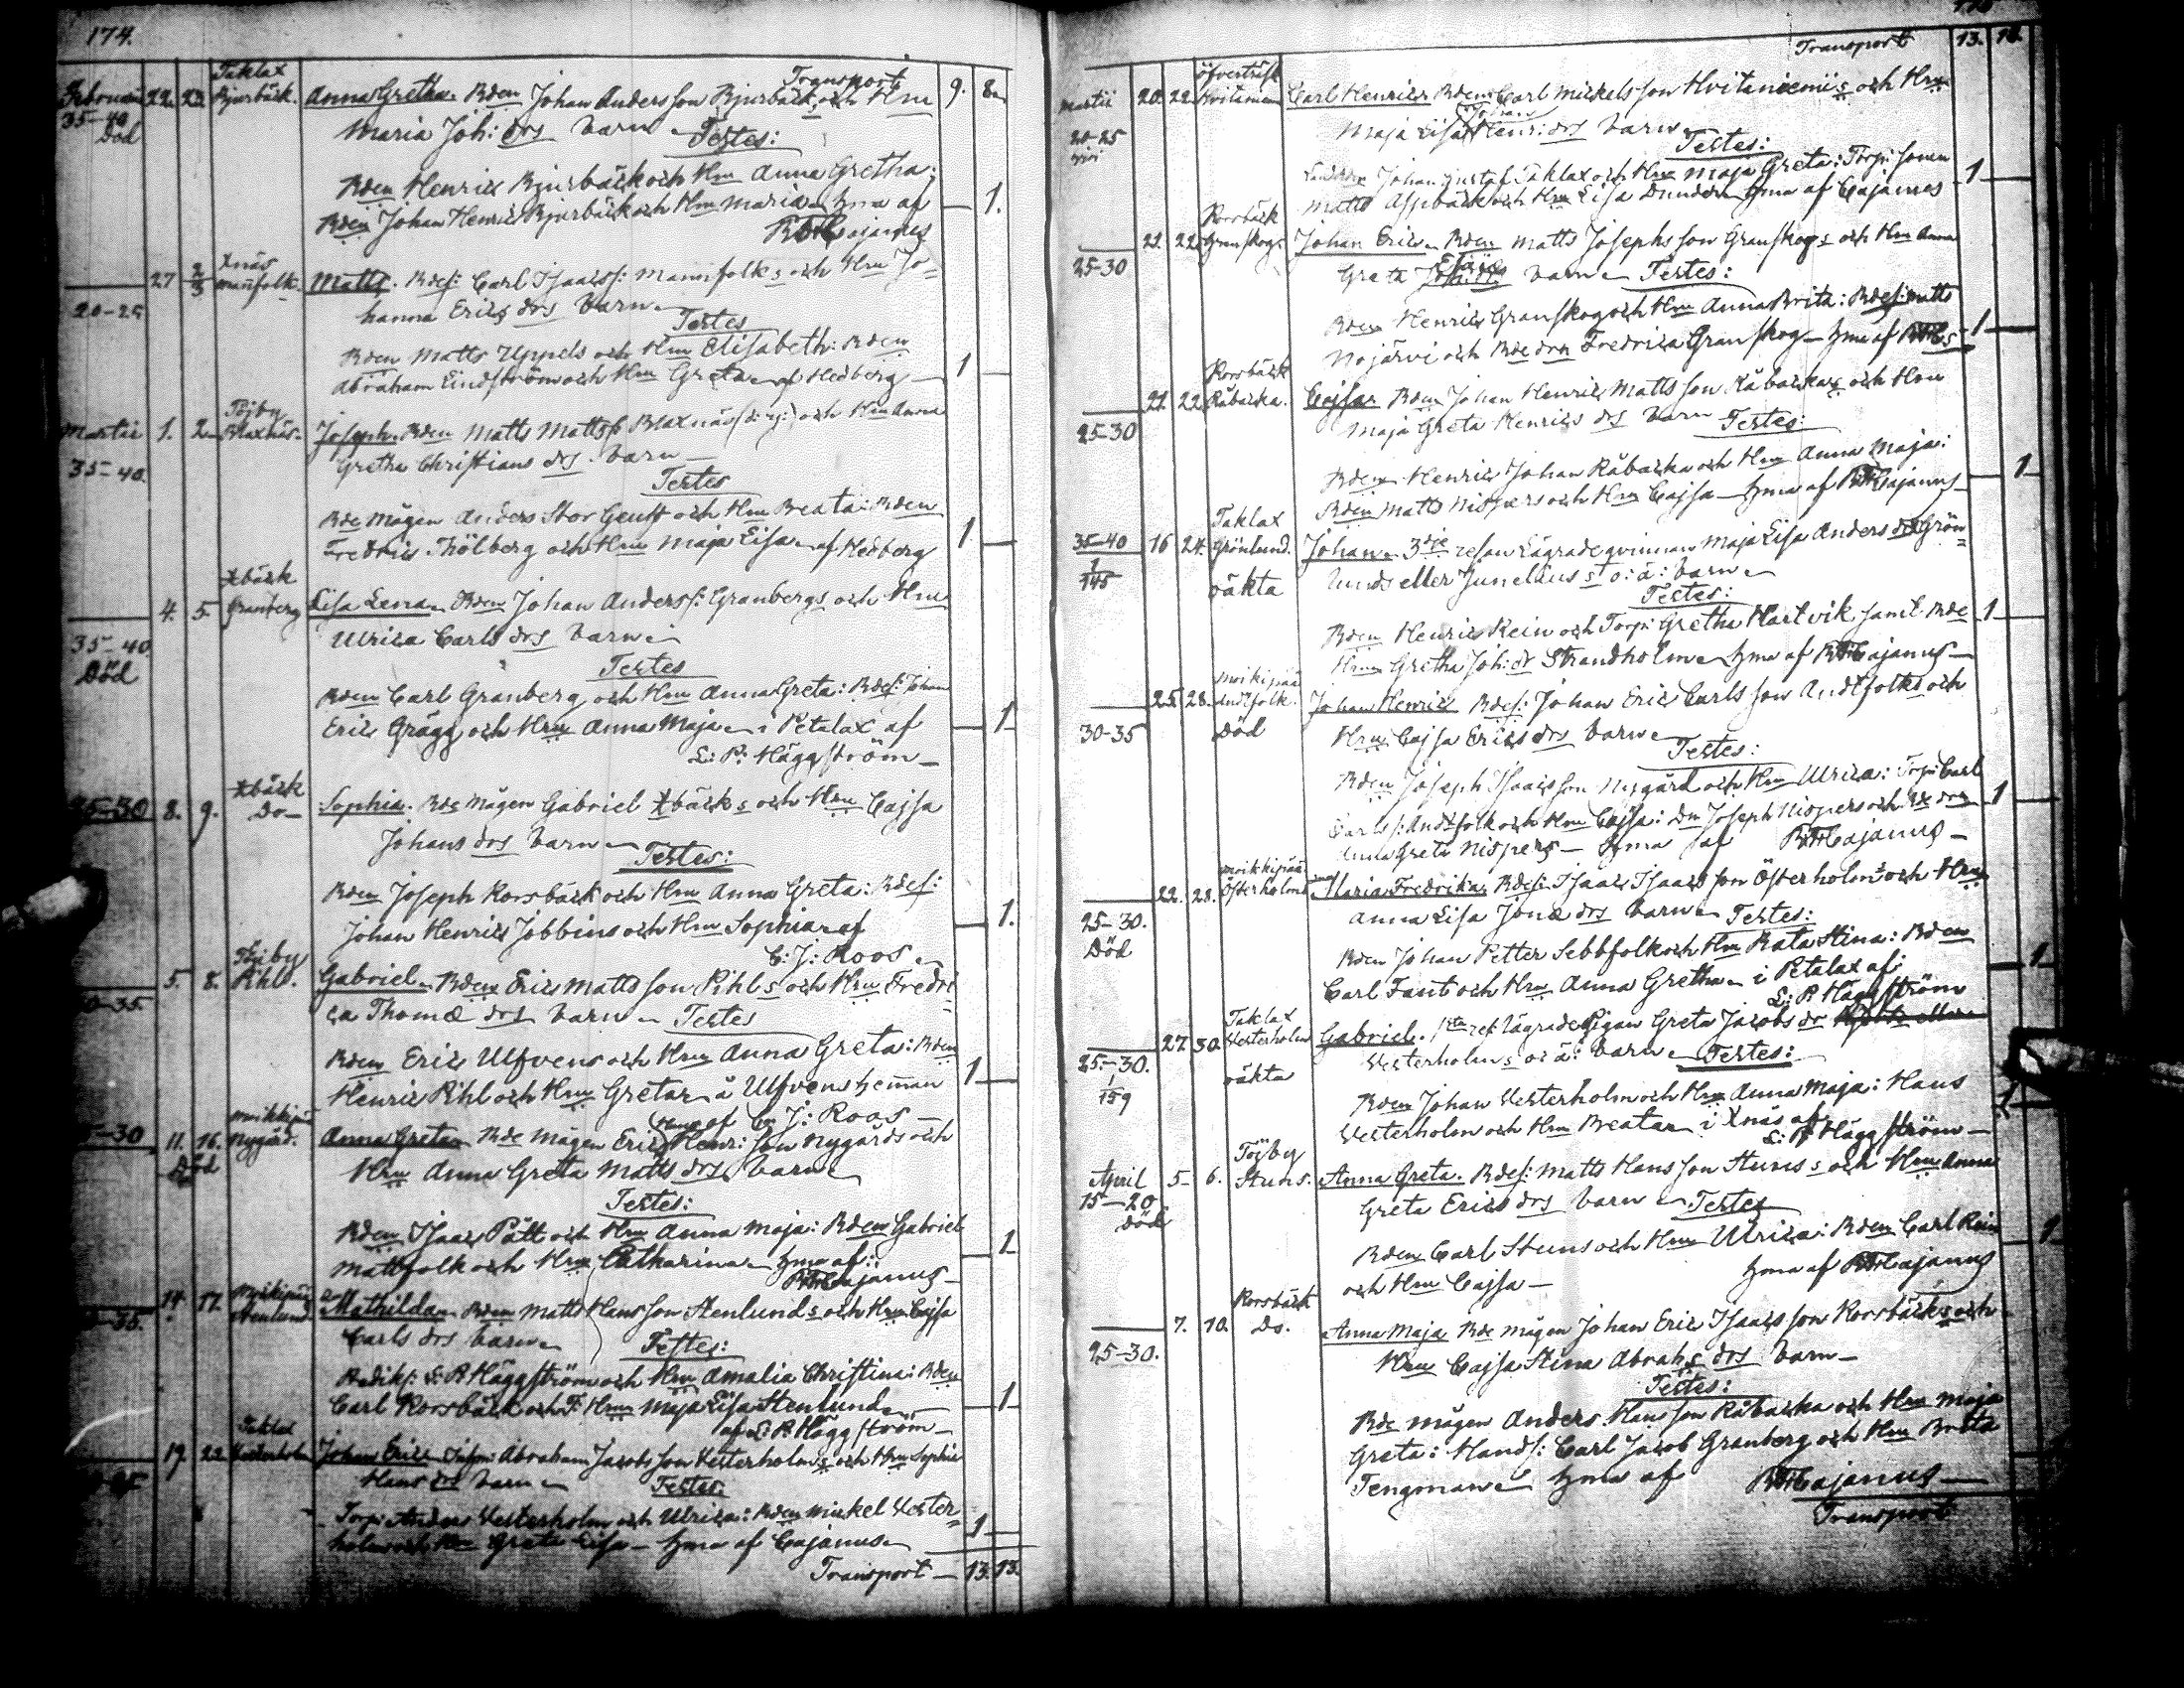 174.
Transport 9. 8.
Februari 22. 23. Taklax Bjurbäck. Anna Gretha. Bden Johan Andersson Bjurbäck och Hru
35-40 Död Maria Joh: drs barn
Testes:
Bden Henric Bjurbäck och Hru Anna Gretha;
Bden Johan Henric Bjurbäck och Hru Maria hma af 1.
Cajanus
27 2/3 Xnäs Mañfolk. Matts. Bdes: Carl Isaacs: Mannfolks och Hru Jo=
20-25 hanna Erics drs barn
Testes
Bden Matts Uppels och Hru Elisabeth: Bden
Abraham Lindström och Hru Greta af Hedberg 1
Martii 1. 2. Töjby Blaxnäs. Joseph. Bden Matts Mattss Blaxnäs och Hru Anna
35-40. Gretha Christians drs. barn
Testes
Bde Mågen Anders Stor Geust och Hru Beata: Bden
Fredric Thölberg och Hru Maja Lisa af Hedberg 1
4. 5. Xbäck Granberg Lisa Lena. Bden Johan Anderss: Granbergs och Hru
35-40 Död Ulrica Carls drs barn
Testes
Bden Carl Granberg och Hru Anna Greta: Bdes: Johan
Eric Grägg och Hru Anna Maja i Petalax af 1
L: P: Häggström
25-30 8. 9. Xbäck Do Sophia. Bde Mågen Gabriel Xbäcks och Hru Cajsa
Johans drs barn
Testes:
Bden Joseph Korsbäck och Hru Anna Greta: Bdes:
Johan Henric Jobbins och Hru Sophia af 1.
C: J: Roos
5. 8. Töjby Pihl. Gabriel. Bden Eric Mattsson Pihls och Hru Fredri=
ca Thomæ drs barn Testes
Bden Eric Ulfvens och Hru Anna Greta: Bden
Henric Pihl och Hru Greta å Ulfvens heman 1
af C J: Roos
11. 16. Moikipää Nygård. Anna Greta Bde Mågen Eric Henr: son Nygårds och
Död Hru Anna Greta Matts drs barn
Testes:
Bden Isaac Pått och Hru Anna Maja: Bden Gabriel
Mattfolk och Hru Catharina hma af: 1
Cajanus
14. 17. Moikipää Stenlund Mathilda Bden Matts Hansson Stenlunds och Hru Cajsa
Carls drs barn Testes:
L: P Häggström och Hru Amalia Christina: Bden
Carl Korsbäck och Hru Maja Lisa Stenlund 1
af L: P. Häggström
19. 22. Taklax Westerholm Johan Eric Abraham Jacobsson Westerholms och Hru Sophia
Hans drs barn Testes.
Torp: Anders Westerholm och Ulrica: Bden Mickel Wester=
holm och Hru Greta Lisa hma af Cajanus 1
Transport 13. 13.
Transport 13. 13.
Martii 20. 22. Öfverträsk Hvitaniemi Carl Henric Bden Carl Mickelsson Hvitaniemis och Hru
20-25 Maja Lisa Henr: drs barn
Testes:
Johan Gustaf Taklax och Hru Maja Greta: Torp: sonen 1
Matts Aspbäck och Hru Lisa Dunder hma af Cajanus
21. 22. Korsbäck Granskog. Johan Eric Bden Matts Josephsson Granskogs och Hru Anna
25-30 Greta barn Testes:
Bden Henric Granskog och Hru Anna Brita: Bdes: Matts
Nojärvi och Bde drn Fredrica Granskog hma af 1
21. 22. Korsbäck Råbacka. Cajsa. Bden Johan Henric Mattsson Råbackas och Hru
25-30 Maja Greta Henrics drs barn Testes:
Bden Henric Johan Råbacka och Hru Anna Maja:
Bden Matts Nispers och Hru Cajsa hma af Cajanus 1
35-40 16 24. Taklax Grönlund. Johan 3dje resan Lägrade qvinnan Maja Lisa Anders dr Grön=
1/145 oäkta lunds eller Junelius o: ä: barn
Testes:
Bden Henric Rein och Torp: Gretha Hartvik samt Bde 1
Hru Gretha Joh: dr Strandholm hma af Cajanus
25. 28. Moikipää Andtfolk. Johan Henric Bdes: Johan Eric Carlsson Andtfolks och
30-35 Död Hru Cajsa Erics drs barn
Testes:
Bden Joseph Isaacsson Nygård och Hru Ulrica: Torp: Carl
Carls: Andtfolk och Hru Cajsa: Dn Joseph Nispers och Bde drn 1
Anna Greta Nispers hma af Cajanus
22. 28. Moikkipää Österholm Maria Fredrika Bdes: Isaac Isaacsson Österholms och Hru
25-30. Död Anna Lisa Jonæ drs barn Testes:
Bden Johan Petter Sebbfolk och Hru Kata Stina: Bden 1
Carl Fant och Hru Anna Gretha i Petalax af:
L: P Häggström
27. 30. Taklax Westerholm Gabriel. 1sta res: Lägrade Pigan Greta Jacobs dr
25-30. 1/159 oäkta Westerholms o: ä: barn Testes:
Bden Johan Westerholm och Hru Anna Maja: Hans 1
Westerholm och Hru Beata i Xnäs af
L: P Häggström
April 5. 6. Töjby Stuns. Anna Greta. Bdes: Matts Hansson Stuns s och Hru Anna
15-20 Död Greta Erics drs barn Testes
Bden Carl Stuns och Hru Ulrica: Bden Carl Rein 1
och Hru Cajsa hma af Cajanus
7. 10. Korsbäck Do. Anna Maja Bde Mågen Johan Eric Isaacsson Korsbäcks och
25-30. Hru Cajsa Stina Abrah s drs barn
Testes:
Bde Mågen Anders Hansson Råbacka och Hru Maja
Greta: Hands: Carl Jacob Granberg och Hru Brita
Tengman hma af Cajanus
Transport